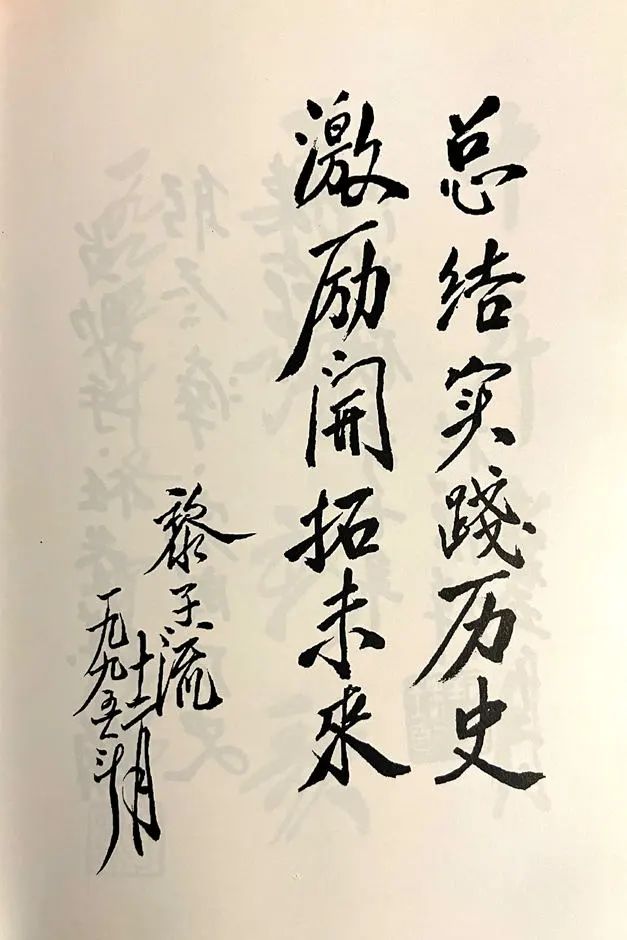 总结实践历史
激励開拓未來
黎子流
一九九五年
十二月